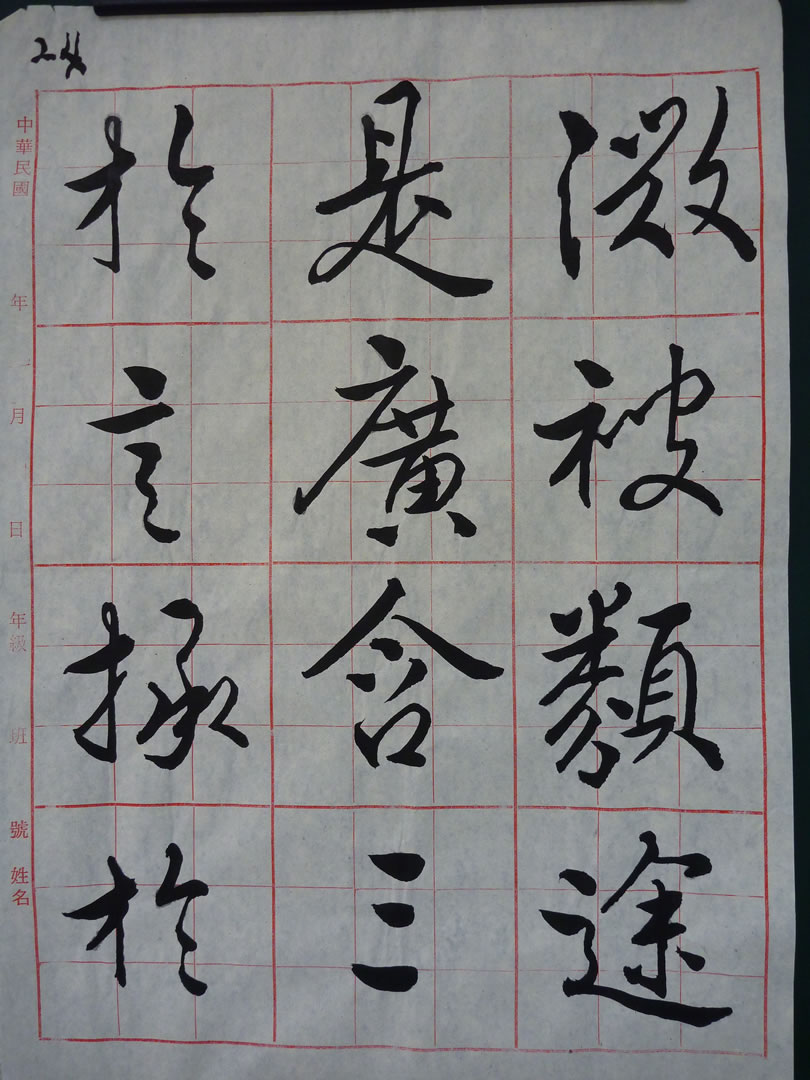 於是微
言廣被
拯含類
於三途
中華民國 年 月 日 年級 班 號 姓名